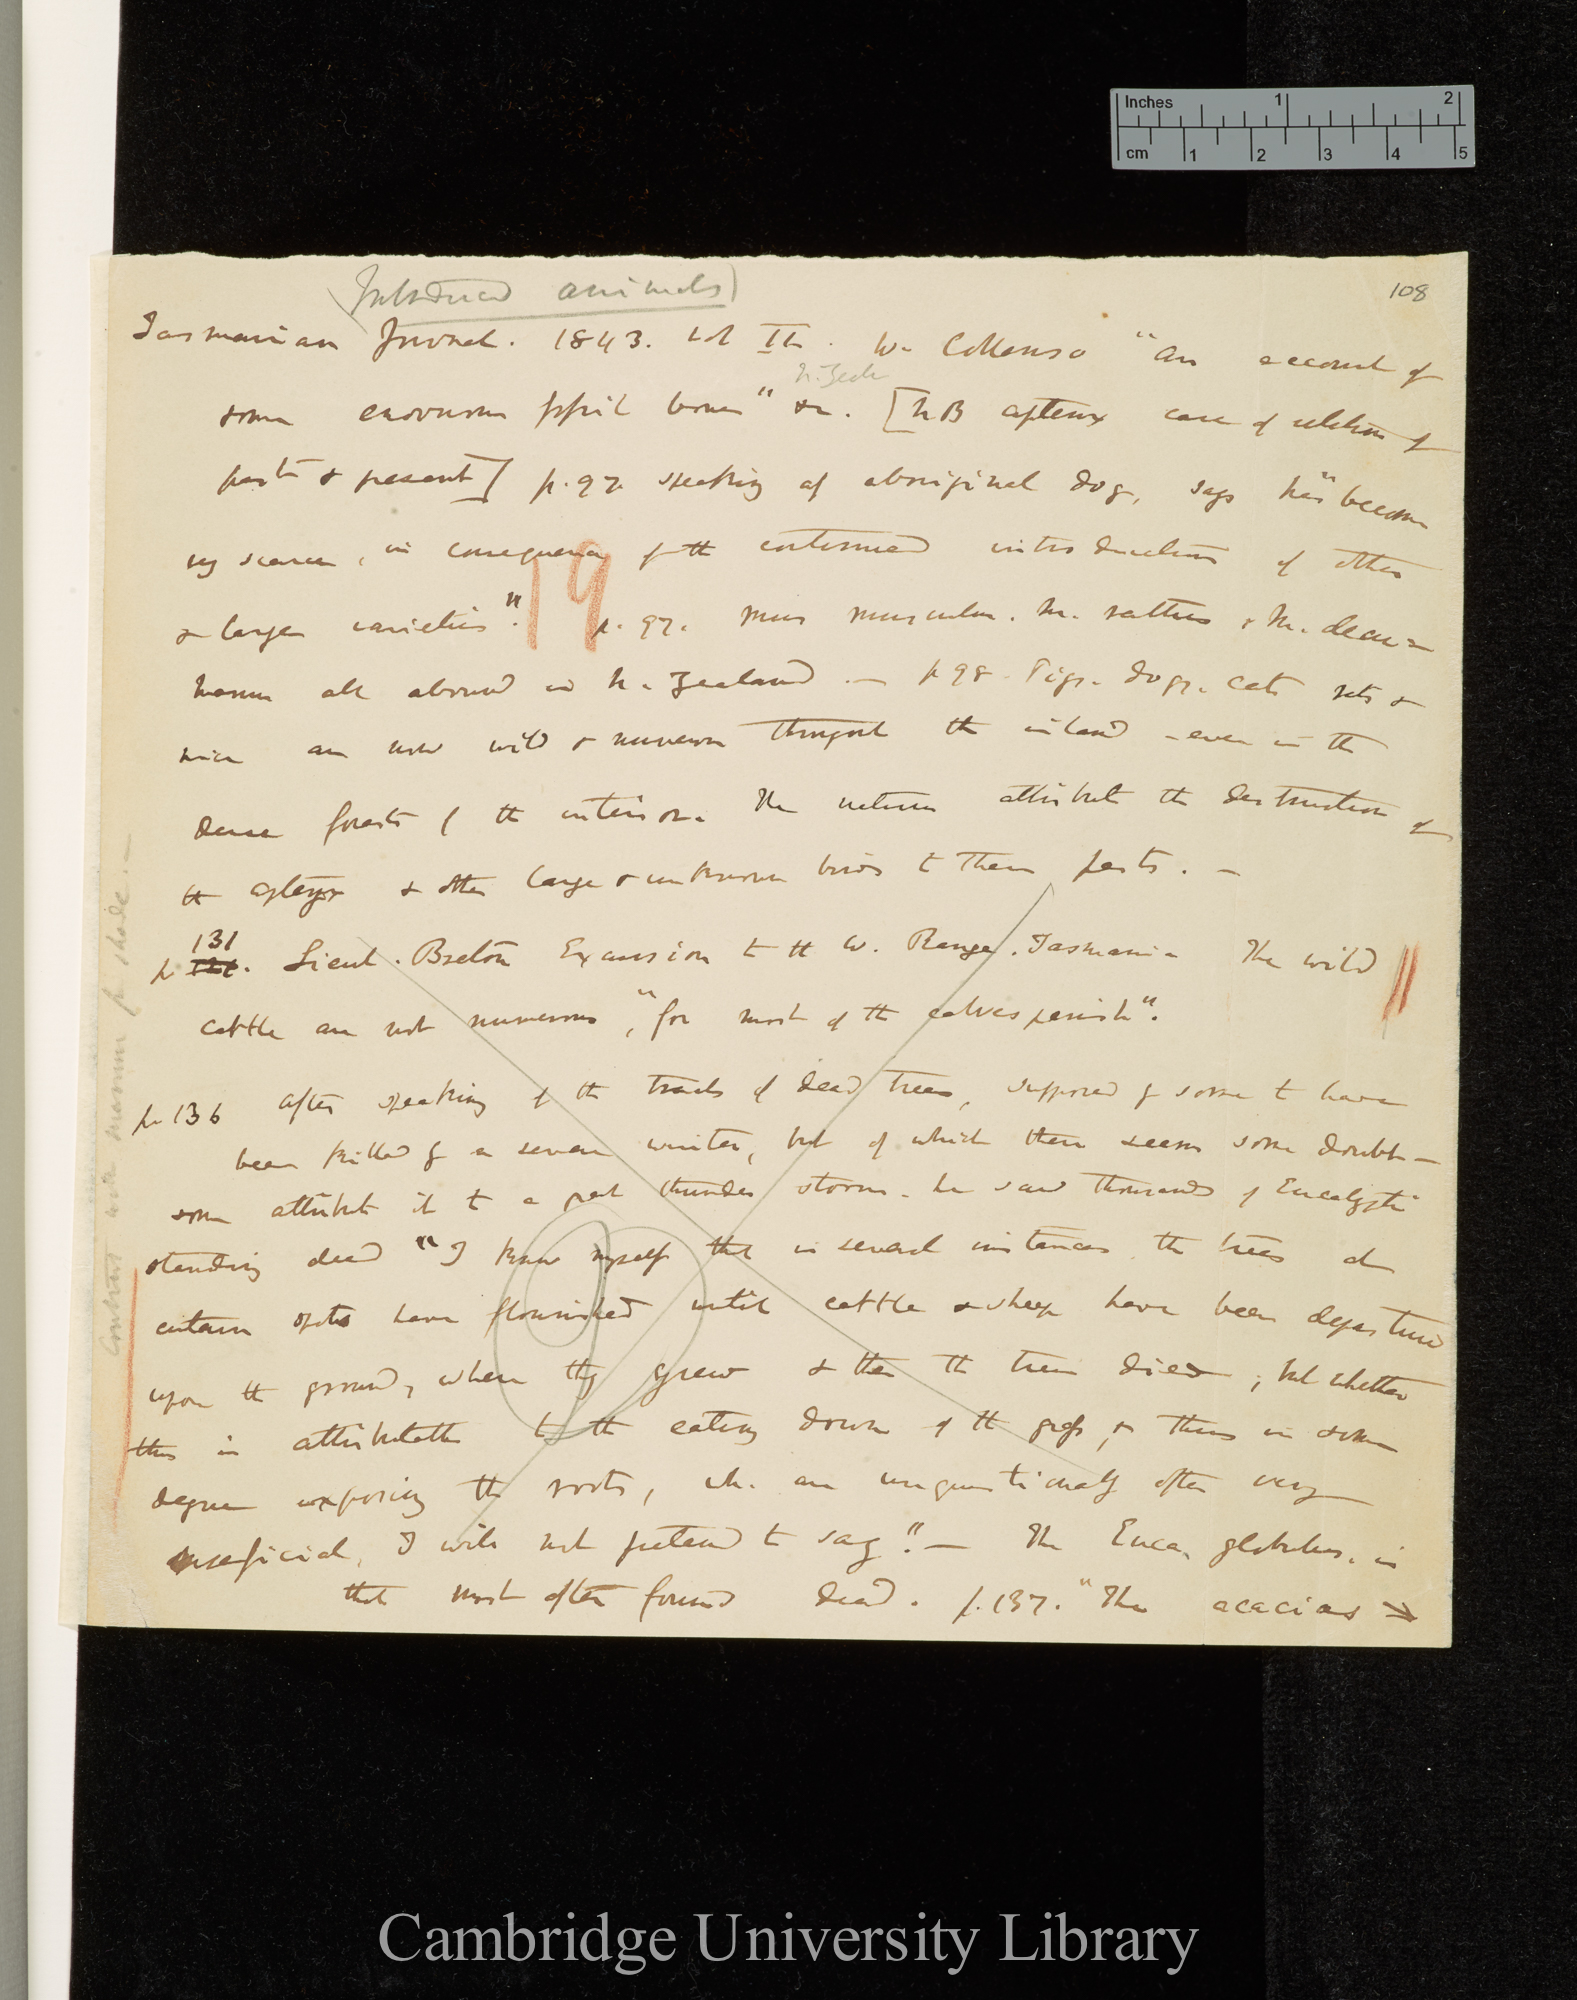 Inches 1 2
cm 1 2 3 4 5
108
Introduced animals
Tasmanian Journal. 1843. vol II. W. Collenso "An account of
N. Zeal
some enormous fossil bones" &c. [NB apteryx case of relation of
past & present] p. 97. speaking of aboriginal dog, says has "become
very scarce, in consequence of the continued introduction of other
& larger varieties".
19
p. 97. Mus musculus. M. rattus & M. decu=
manus all abound in N. Zealand.— p 98. Pigs. dogs. cats rats &
mice are now wild & numerous throughout the island – even in the
dense forests of the interior. The natives attribute the destruction of
the apteryx & other large & unknown birds to these pests. —
131
p 121. Lieut. Breton Excursion to the W. Range. Tasmania The wild
cattle are not numerous, "for most of the calves perish".
p. 136 After speaking of the tracts of dead trees, supposed by some to have
been killed by a severe winter, but of which there seems some doubt—
some attribute it to a great thunder storm. he saw thousands of Eucalypti
standing dead "I know myself that in several instances the trees at
certain spots have flourished until cattle & sheep have been depastured
upon the ground, where they grew & then the trees died; but whether
this is attributable to the eating down of the grass, & thus in some
degree exposing the roots, wh. are unquestionably often very
superficial, I will not pretend to say."— The Euca. globulus. is
that most often found dead. p. 137. "The acacias →
19
Contrast with manure for shade.—
Cambridge University Library